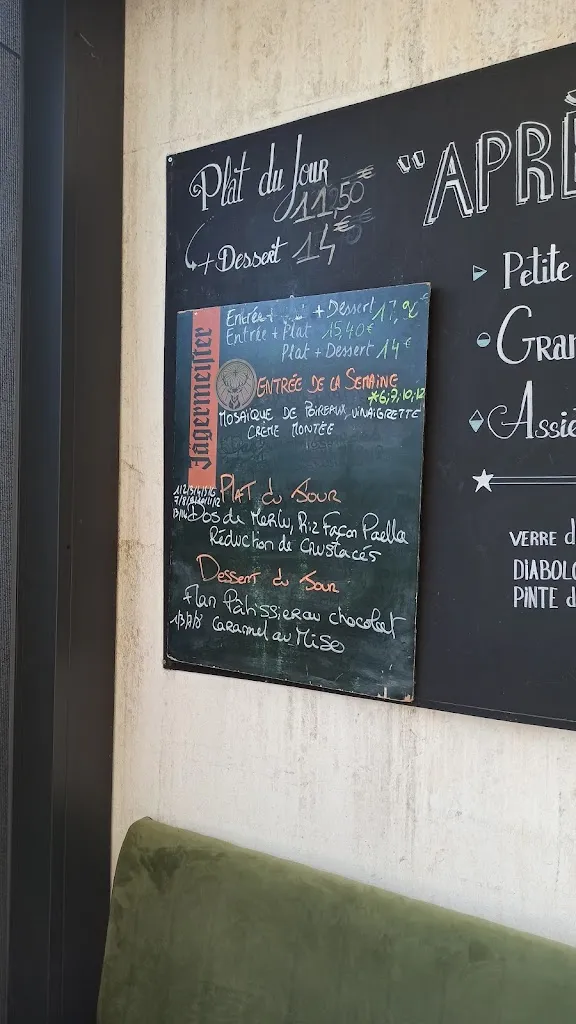 Plat du Jour
11,50€
+ Dessert 14€
"APRÈ
Petite
GRAN
Assie
VERRE d
DIABOLO
PINTE d
Jägermeister
Entrée + + Dessert
Entrée + Plat 15,40€
Plat + Dessert 14€
ENTRÉE DE LA SEMAINE
*6,7,10,12
MOSAÏQUE DE POIREAUX, VINAIGRETTE
CRÈME MONTÉE
PLAT du Jour
Dos de Merlu, Riz Façon Paella
Réduction de crustacés
Dessert du Jour
Flan Pâtissier au chocolat
1/3/7/8 caramel au Miso